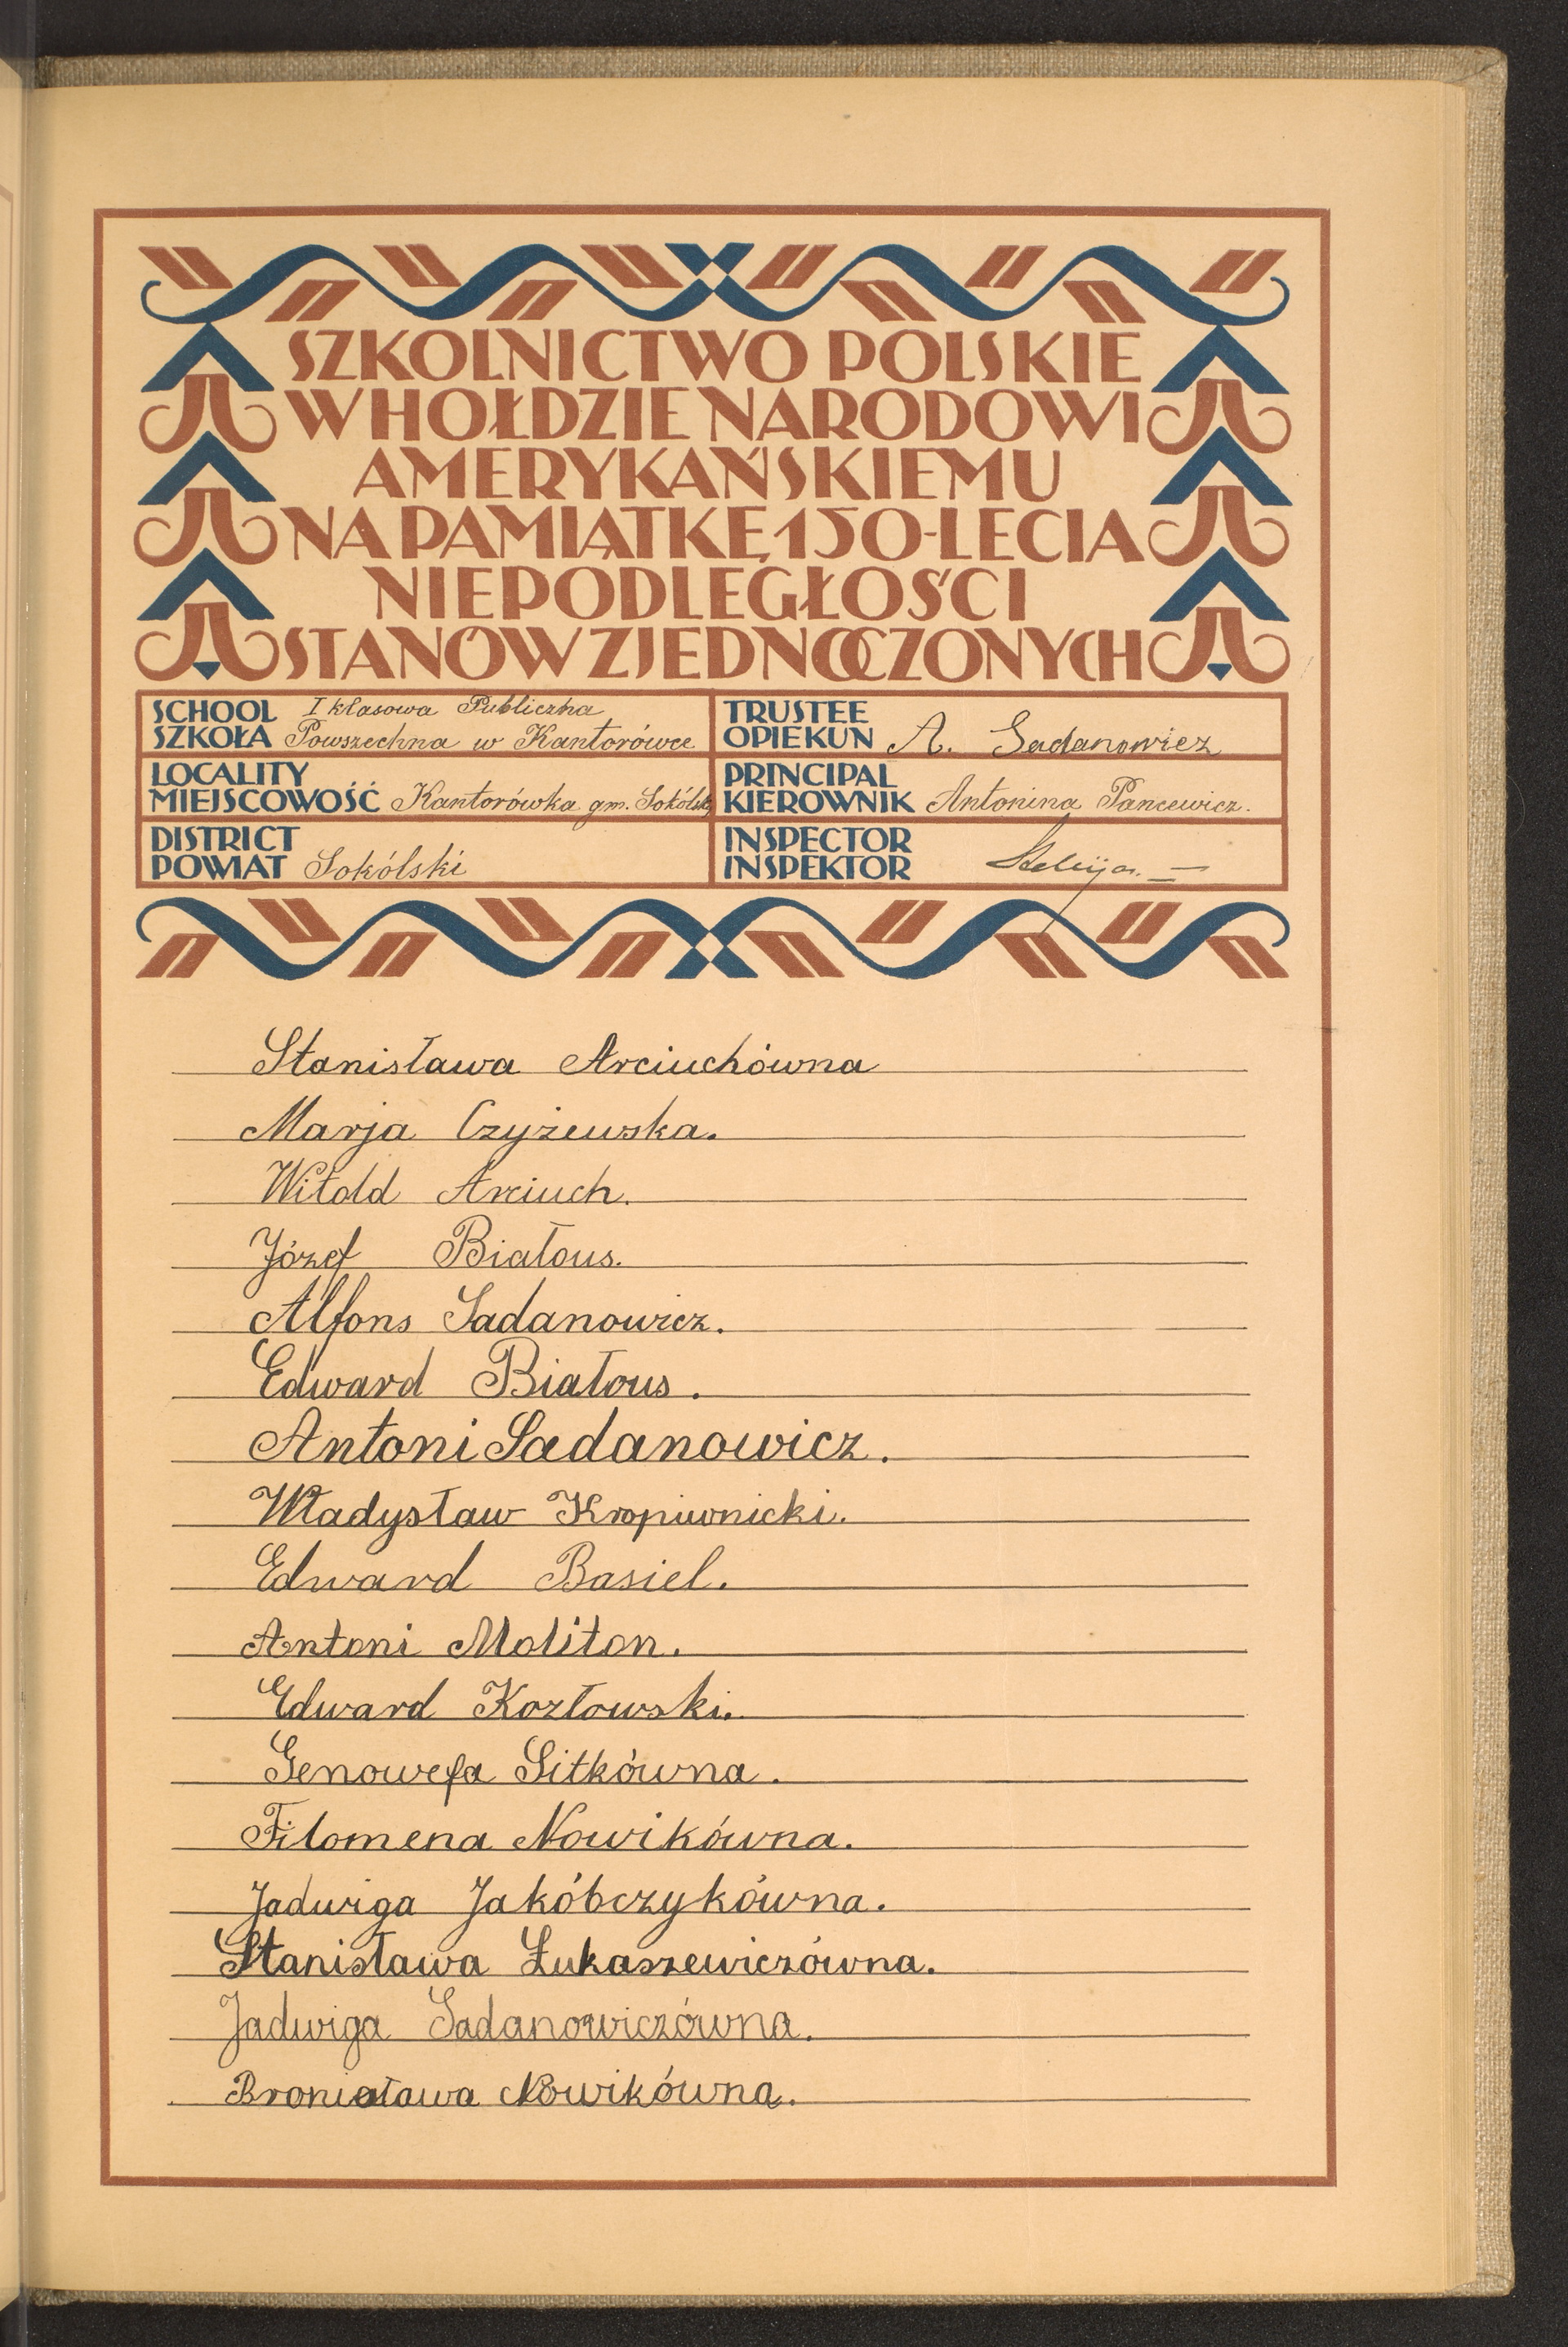 SZKOLNICTWO POLSKIE
W HOŁDZIE NARODOWI
AMERYKAŃSKIEMU
NA PAMIĄTKĘ 150-LECIA
NIEPODLEGŁOŚCI
STANÓW ZJEDNOCZONYCH
SCHOOL I klasowa Publiczna
SZKOŁA Powszechna w Kantorówce
TRUSTEE
OPIEKUN A. Sadanowicz
LOCALITY
MIEJSCOWOŚĆ Kantorówka gm. Sokółsk
PRINCIPAL
KIEROWNIK Antonina Pancewicz.
DISTRICT
POWIAT Sokólski
INSPECTOR
INSPEKTOR
Stanisława Arciuchówna
Marja Czyżewska.
Witold Arciuch.
Józef Białous.
Alfons Sadanowicz.
Edward Białous.
Antoni Sadanowicz.
Władysław Kropiwnicki.
Edward Basiel.
Antoni Moliton.
Edward Kozłowski.
Genowefa Sitkówna.
Filomena Nowikówna.
Jadwiga Jakóbczykówna.
Stanisława Łukaszewiczówna.
Jadwiga Sadanowiczówna.
Bronisława Nowikówna.